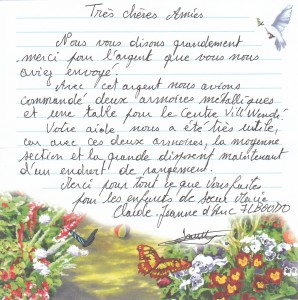 Très chères Amies
Nous vous disons grandement
merci pour l'argent que vous nous
aviez envoyé.
Avec cet argent nous avions
commandé deux armoires métalliques
et une table pour le Centre Vill'Wendé.
Votre aide nous a été très utile,
car avec ces deux armoires, la moyenne
section et la grande disposent maintenant
d'un endroit de rangement.
Merci pour tout ce que vous faites
pour les enfants de sœur Marie
Claude. Jeanne d'Arc ILBOUDO